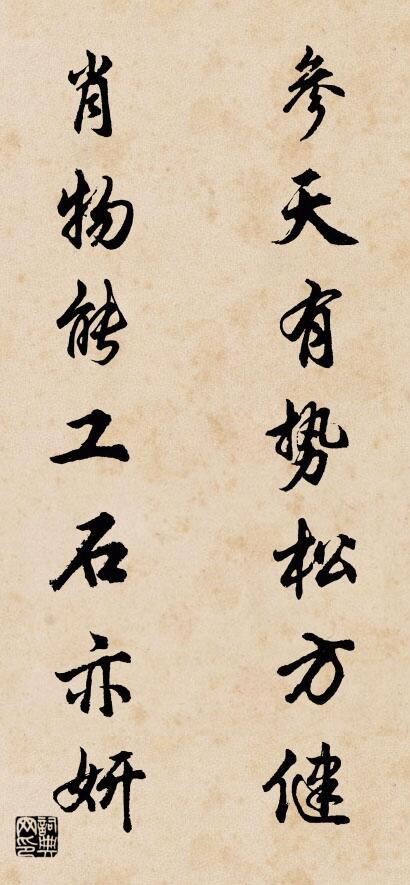 参天有势松方健
肖物能工石亦妍
詞典网印